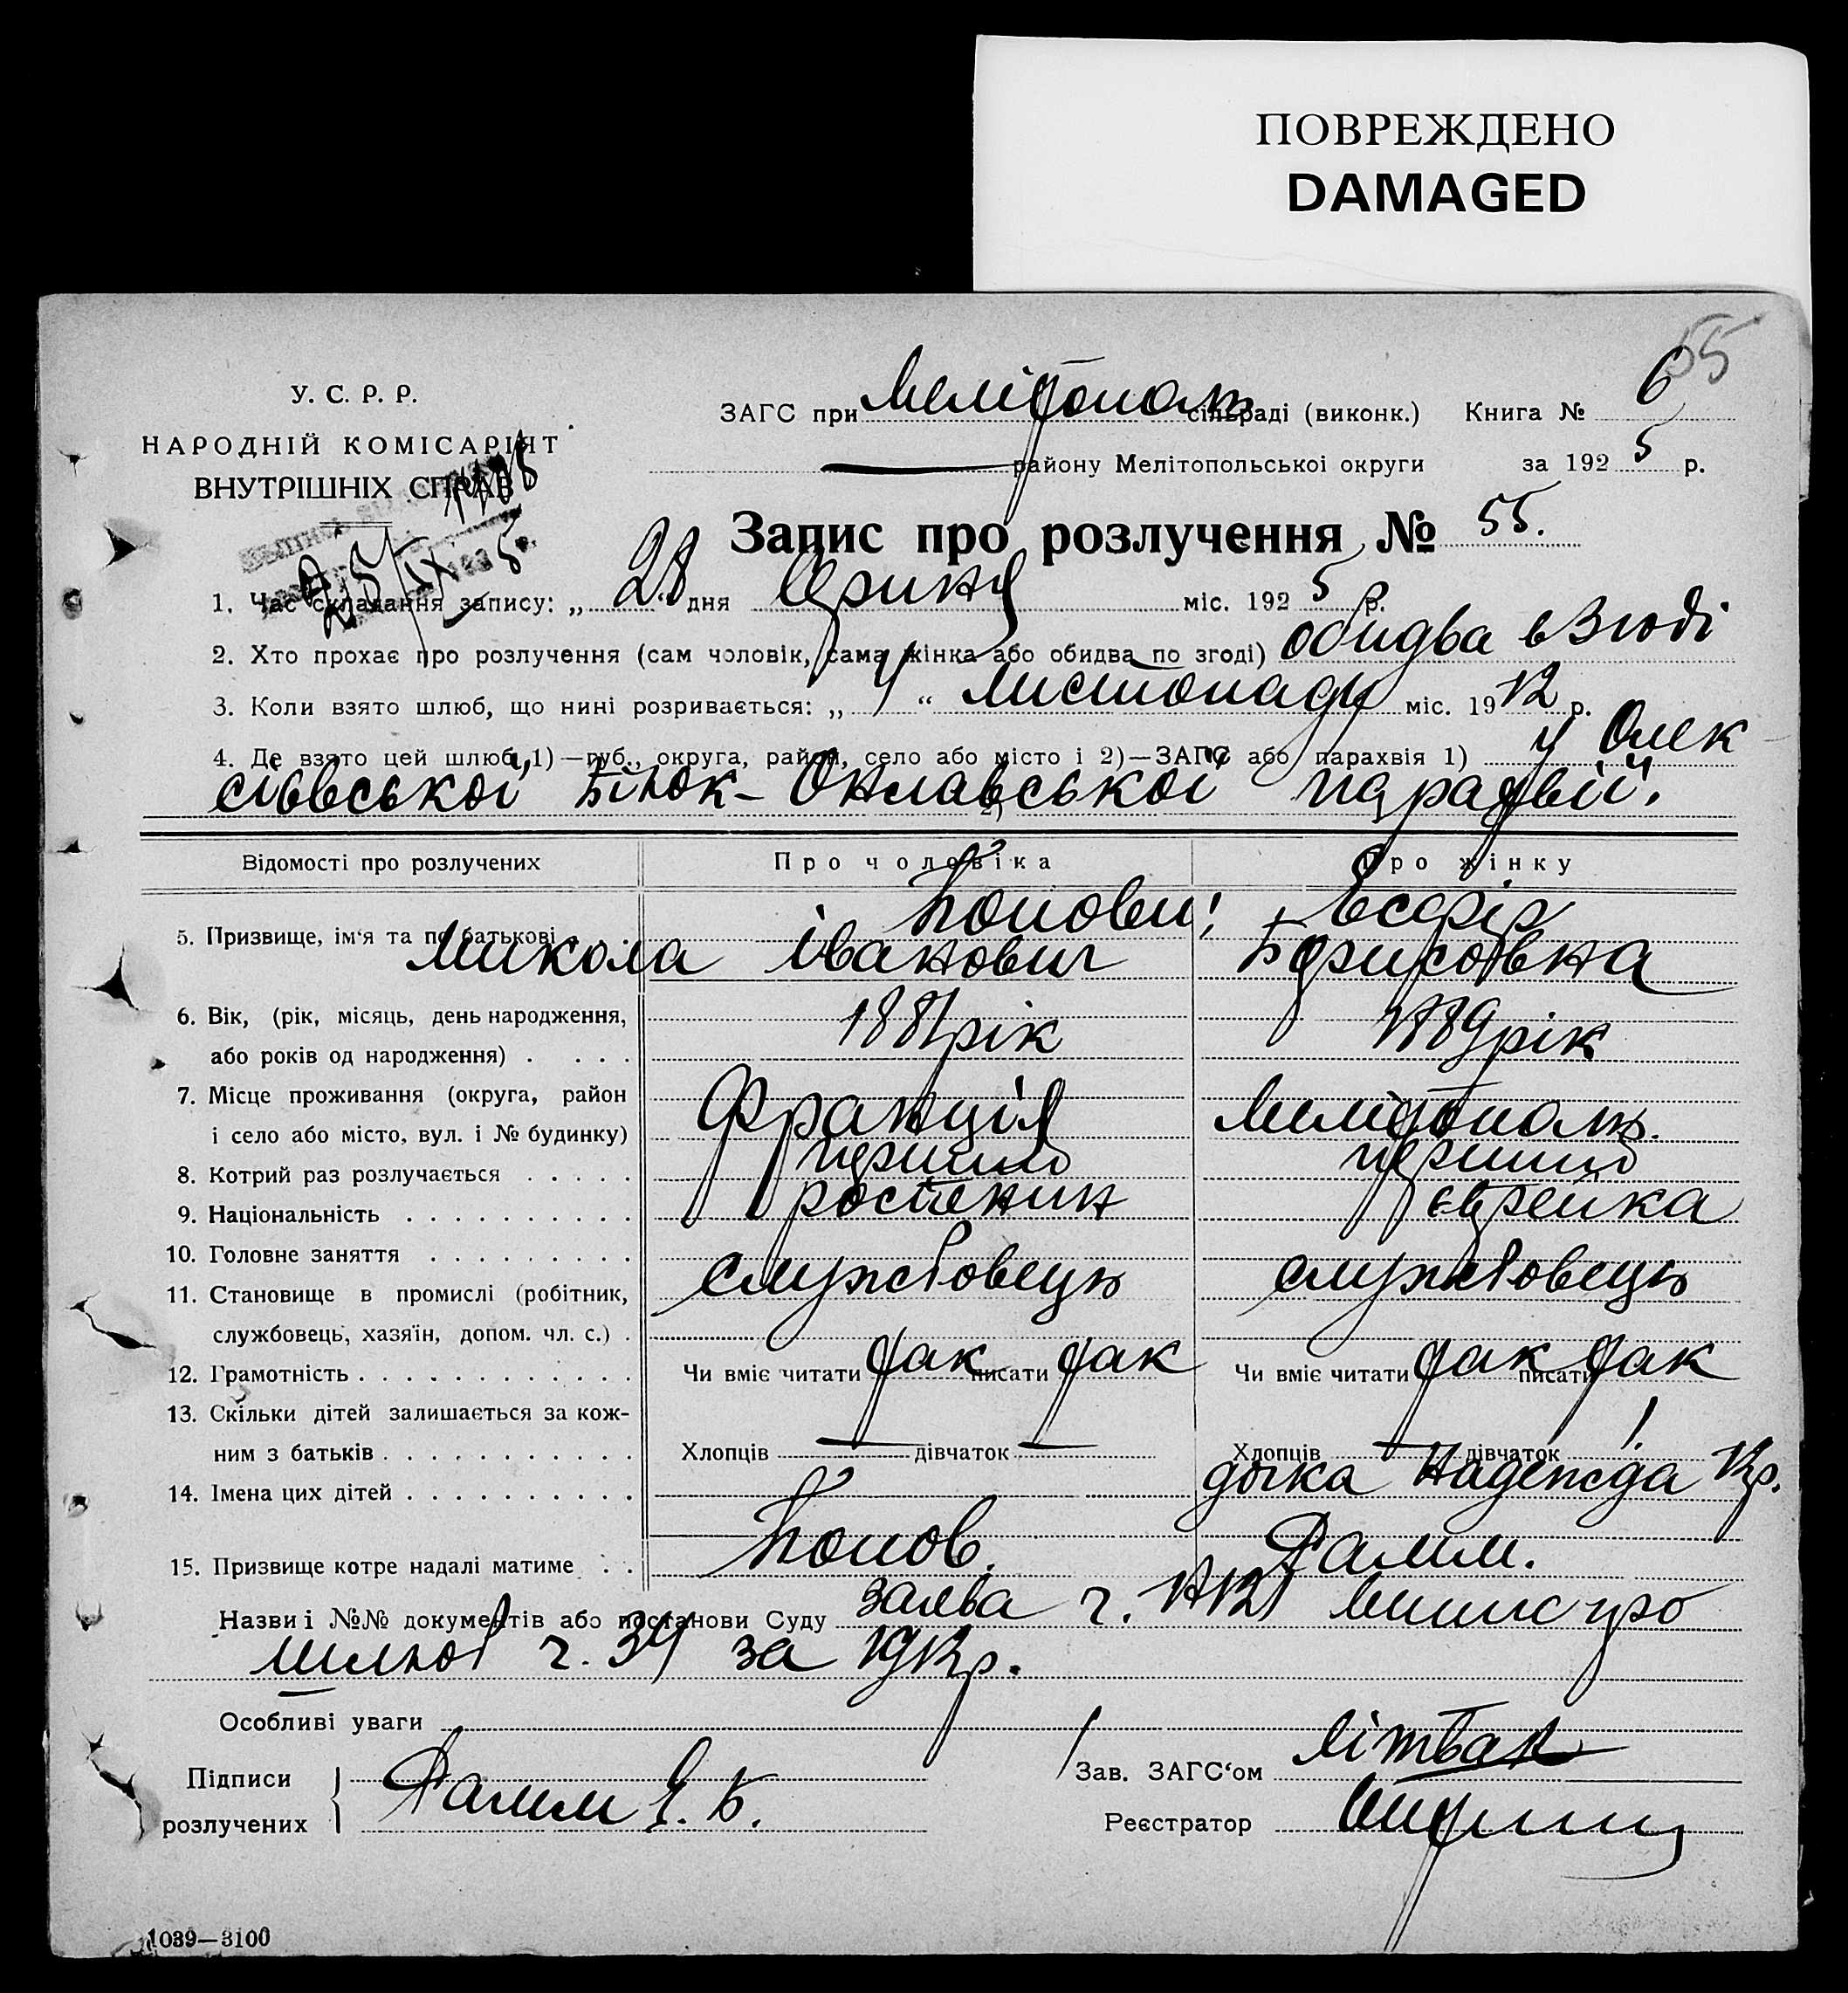 ПОВРЕЖДЕНО
DAMAGED
55
У. С. Р. Р.
НАРОДНІЙ КОМІСАРІЯТ
ВНУТРІШНІХ СПРАВ
ЗАГС при Мелітополь сільраді (виконк.) Книга № 6
району Мелітопольськоі округи за 1925 р.
Запис про розлучення № 55.
1. Час складання запису: „ 28 дня Серпня міс. 1925 р.
2. Хто прохає про розлучення (сам чоловік, сама жінка або обидва по згоді) обидва в згоді
3. Коли взято шлюб, що нині розривається: „ 4 “ листопаду міс. 1912 р.
4. Де взято цей шлюб, 1)—губ., округа, район, село або місто і 2)—ЗАГС або парахвія 1) у Олек-
сіівськоі Бінок-Онлавськоі парахвіі.
2)
Відомості про розлучених Про чоловіка Про жінку
5. Призвище, ім‘я та по батькові Попови! Есфір
Микола Іванович Борисовна
6. Вік, (рік, місяць, день народження,
або років од народження) 1881 рік 1889 рік
7. Місце проживання (округа, район
і село або місто, вул. і № будинку) Франція Мелітополь.
8. Котрий раз розлучається перший перший
9. Національність росіенин єврейка
10. Головне заняття
11. Становище в промислі (робітник, службовець службовець
службовець, хазяїн, допом. чл. с.)
12. Грамотність Чи вміє читати так писати так Чи вміє читати так писати так
13. Скільки дітей залишається за кож-
ним з батьків Хлопців — дівчаток — Хлопців — дівчаток 1
14. Імена цих дітей дочка Надежда 12 р.
15. Призвище котре надалі матиме Попов. Рамм.
Назви і №№ документів або постанови Суду заява ч. 1121 Випис про
шлюб ч. 34 за 1912 р.
Особливі уваги
Підписи
розлучених
Рамм Е. Б.
Зав. ЗАГС‘ом Літвак
Реєстратор
1039—3100